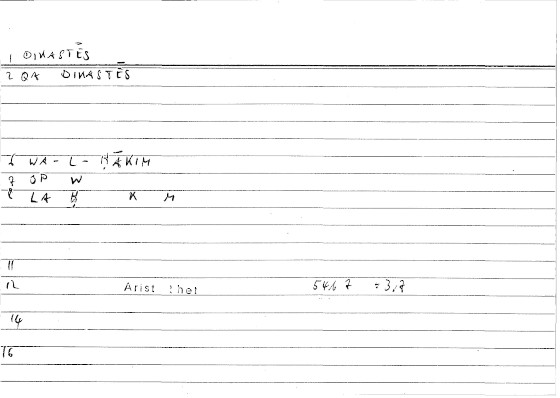 1 DINASTĒS
2 QA DINASTĒS
6 WA - L - ḤĀKIM
7 OP W
8 LA Ḥ K M
11
12 Arist rhet 54,6 7 = 3,7
14
16